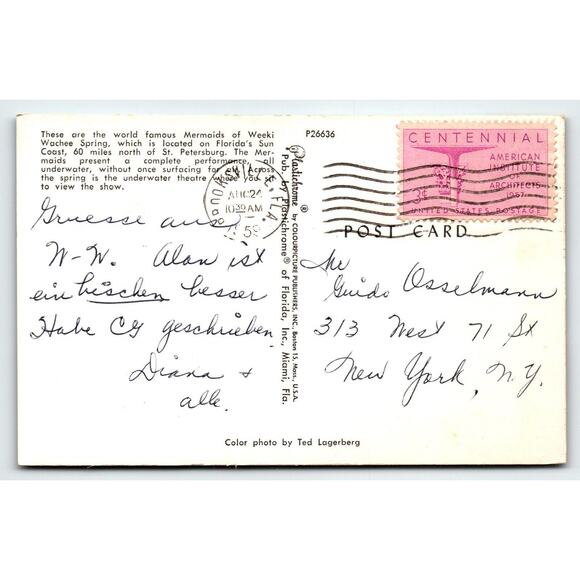 These are the world famous Mermaids of Weeki
Wachee Spring, which is located on Florida's Sun
Coast, 60 miles north of St. Petersburg. The Mer-
maids present a complete performance, all
underwater, without once surfacing for air. Across
the spring is the underwater theatre where you
to view the show.
P26636
BROOKSVILLE, FLA.
AUG 24
1030 AM
1959
CENTENNIAL
AMERICAN
INSTITUTE
OF
ARCHITECTS
1957
3¢
UNITED STATES POSTAGE
POST CARD
Plastichrome® by COLOURPICTURE PUBLISHERS, INC. Boston 15, Mass., U.S.A.
Pub. by Plastichrome® of Florida, Inc., Miami, Fla.
Gruesse aus
W-W. Alan ist
ein bischen besser
Habe geschrieben
Diana +
alle.
Mr
Guido Osselmann
313 West 71 St
New York, N.Y.
Color photo by Ted Lagerberg